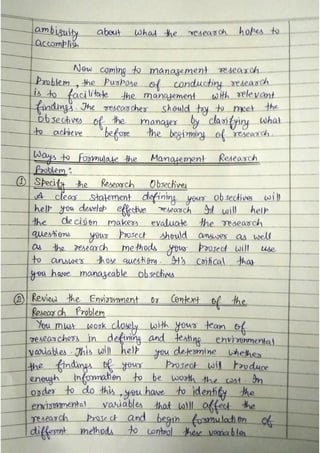 ambiguity about what the research hopes to
accomplish.
Now coming to management research
Problem, the Purpose of conducting research
is to facilitate the management with relevant
findings. The researcher should try to meet the
objectives of the manager by clarifying what
to achieve before the beginning of research.
Ways to Formulate the Management Research
Problem:
① Specify the Research Objectives
A clear statement defining your objectives will
help you develop effective research It will help
the decision makers evaluate the research
questions your Project should answer as well
as the research methods your Project will use
to answer those questions. It's critical that
you have manageable objectives
② Review the Environment or Context of the
Research Problem
You must work closely with your team of
researchers in defining and testing environmental
variables. This will help you determine whether
the findings of your Project will Produce
enough information to be worth the cost In
order to do this, you have to identify the
environmental variables that will affect the
research Project and begin formulation of
different methods to control these variables